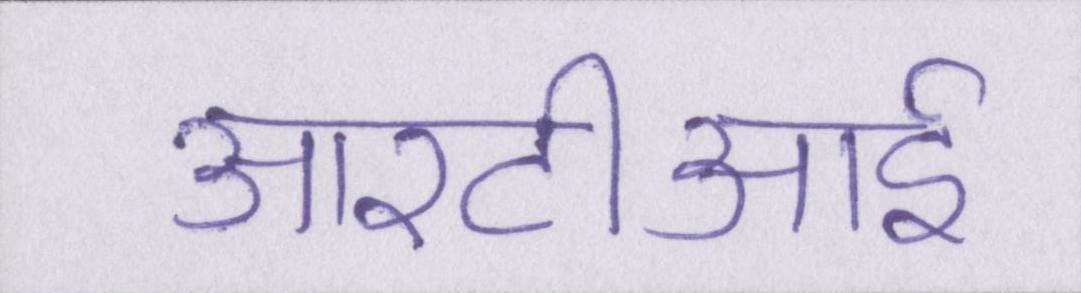 आरटीआई